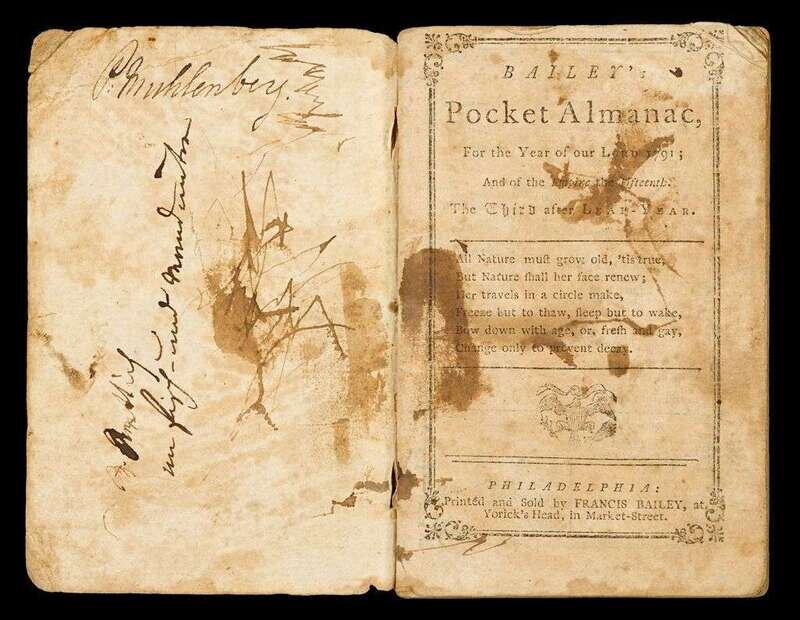 P. Muhlenberg.
BAILEY's
Pocket Almanac,
For the Year of our LORD 1791;
And of the Empire the Fifteenth.
The Third after LEAP-YEAR.
All Nature muſt grow old, 'tis true,
But Nature ſhall her face renew;
Her travels in a circle make,
Freeze but to thaw, ſleep but to wake,
Bow down with age, or, freſh and gay,
Change only to prevent decay.
PHILADELPHIA:
Printed and Sold by FRANCIS BAILEY, at
Yorick's Head, in Market-Street.